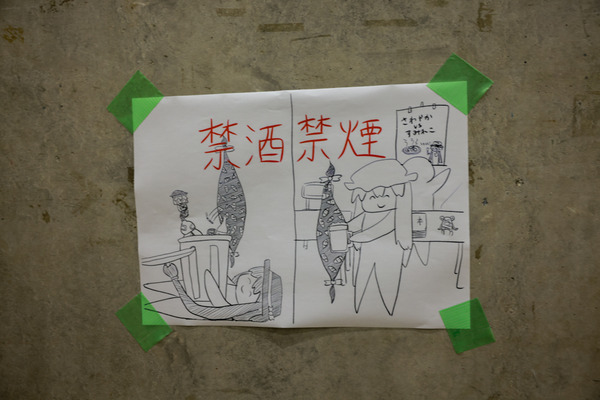 禁酒禁煙
さわやか
い
すみれこ